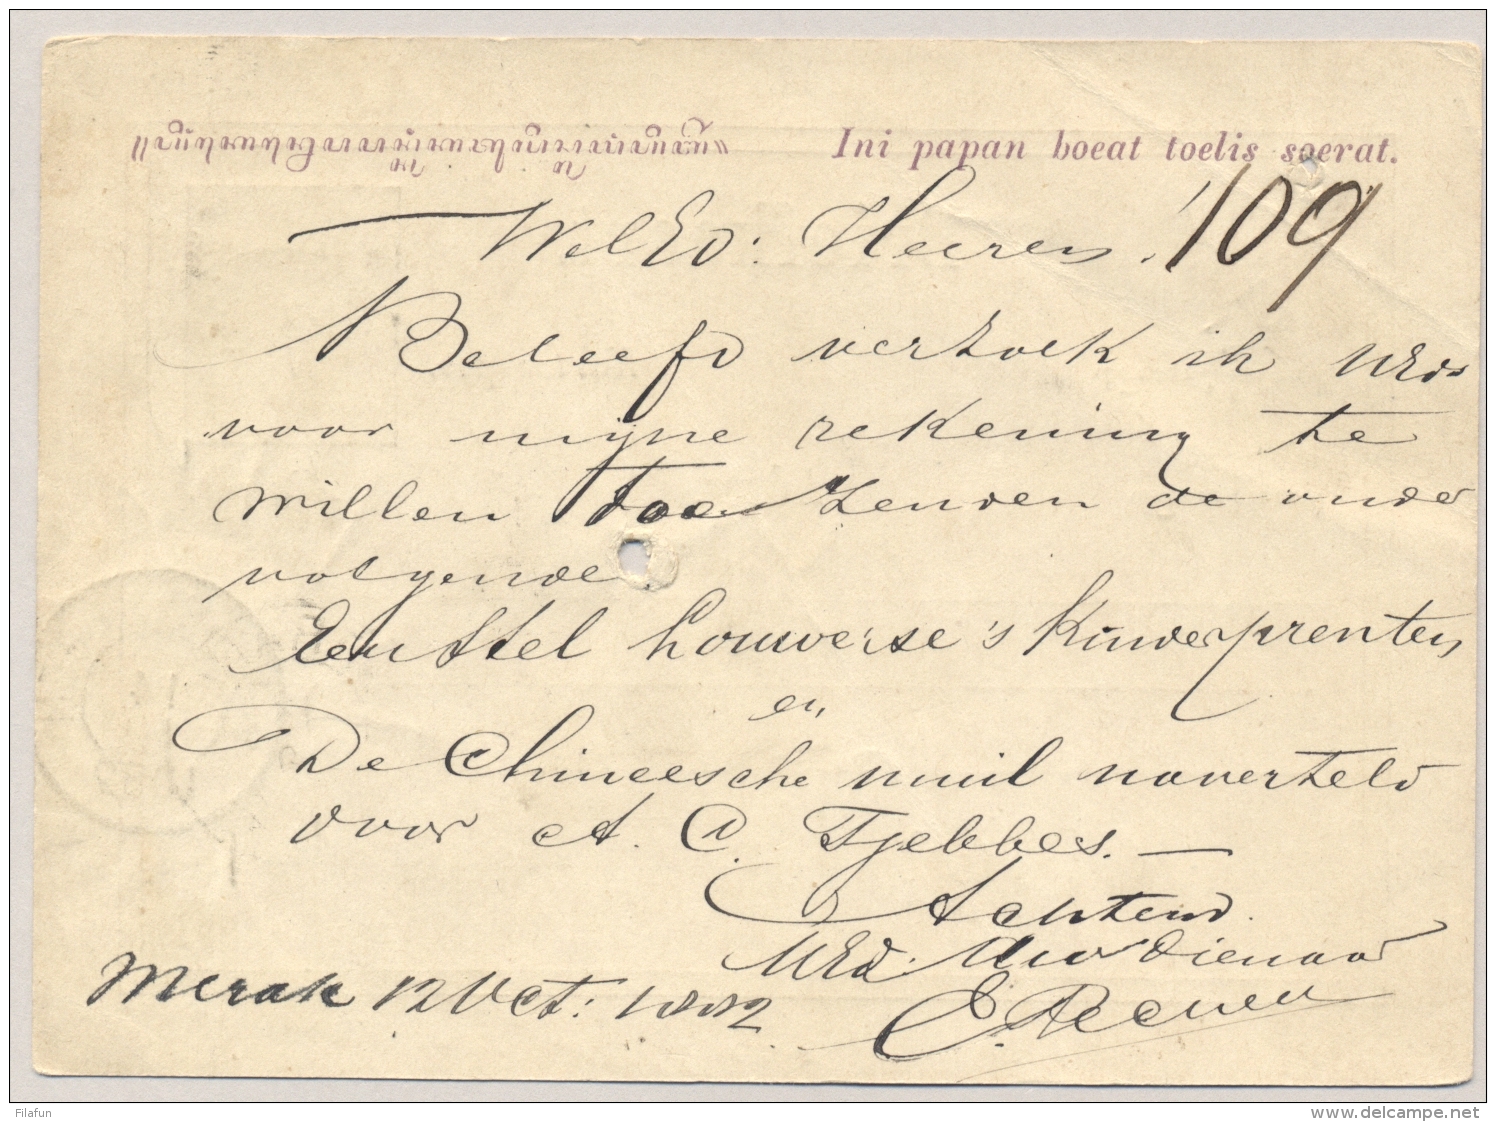 Ini papan boeat toelis soerat.
WelEd: Heeren. 109
Beleefd verzoek ik UEds
voor mijne rekening te
willen toe zenden de onder
volgende.
Een stel Louwerse's Kinderprenten
en
De Chineesche muil naverteld
door A. C. Tjebbes. —
Achtend
UEd. Uw Dienaar
Merak 12 Oct: 1882.
Filafun
www.delcampe.net